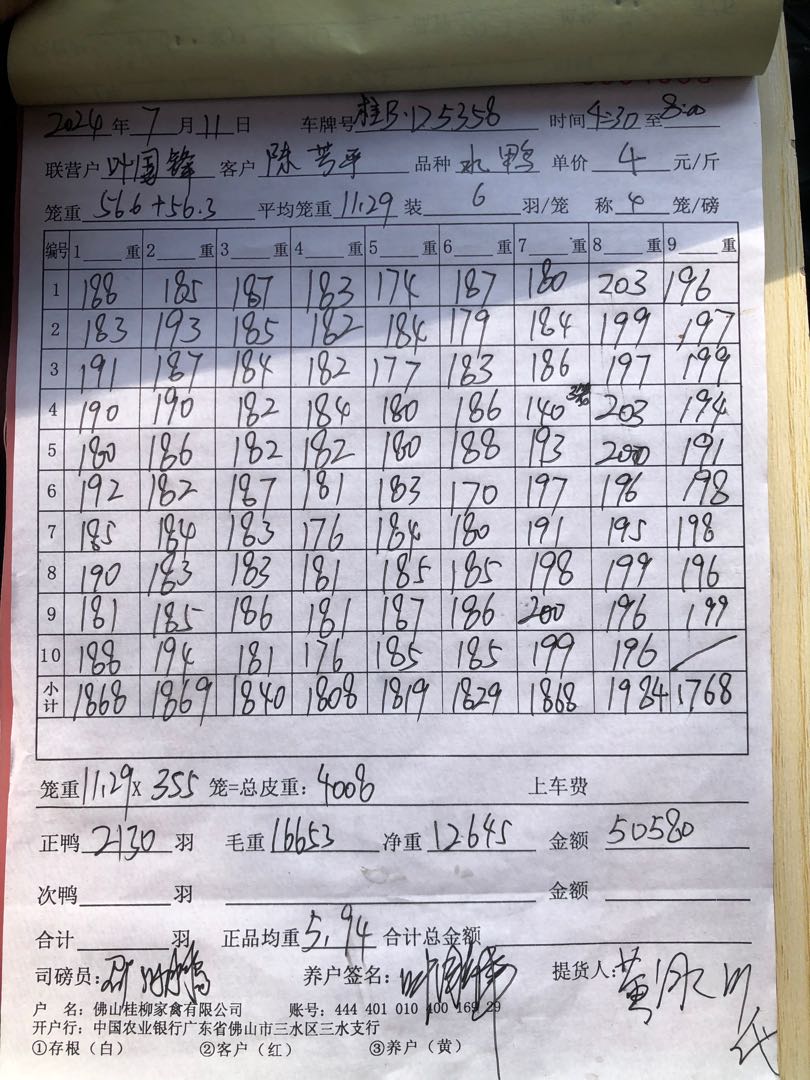 2024年7月11日 车牌号桂B·125358 时间4:30至8:00
联营户叶国锋 客户陈芳平 品种水鸭 单价4元/斤
笼重56.6+56.3 平均笼重11.29 装6羽/笼 称4笼/磅
编号 1重 2重 3重 4重 5重 6重 7重 8重 9重
1 188 185 187 183 174 187 180 203 196
2 183 193 185 182 184 179 184 199 197
3 191 187 184 182 177 183 186 197 199
4 190 190 182 184 180 186 140 203 194
5 180 186 182 182 180 188 193 200 191
6 192 182 187 181 183 170 197 196 198
7 185 184 183 176 184 180 191 195 198
8 190 183 183 181 185 185 198 199 196
9 181 185 186 181 187 186 200 196 199
10 188 194 181 176 185 185 199 196 /
小计 1868 1869 1840 1808 1819 1829 1868 1984 1768
笼重11.29×355笼=总皮重:4008 上车费
正鸭2130羽 毛重16653 净重12645 金额50580
次鸭羽 金额
合计羽 正品均重5.94 合计总金额
司磅员: 养户签名: 提货人:黄
户 名:佛山桂柳家禽有限公司 账号:444 401 010 400 169 29
开户行:中国农业银行广东省佛山市三水区三水支行
①存根(白) ②客户(红) ③养户(黄)